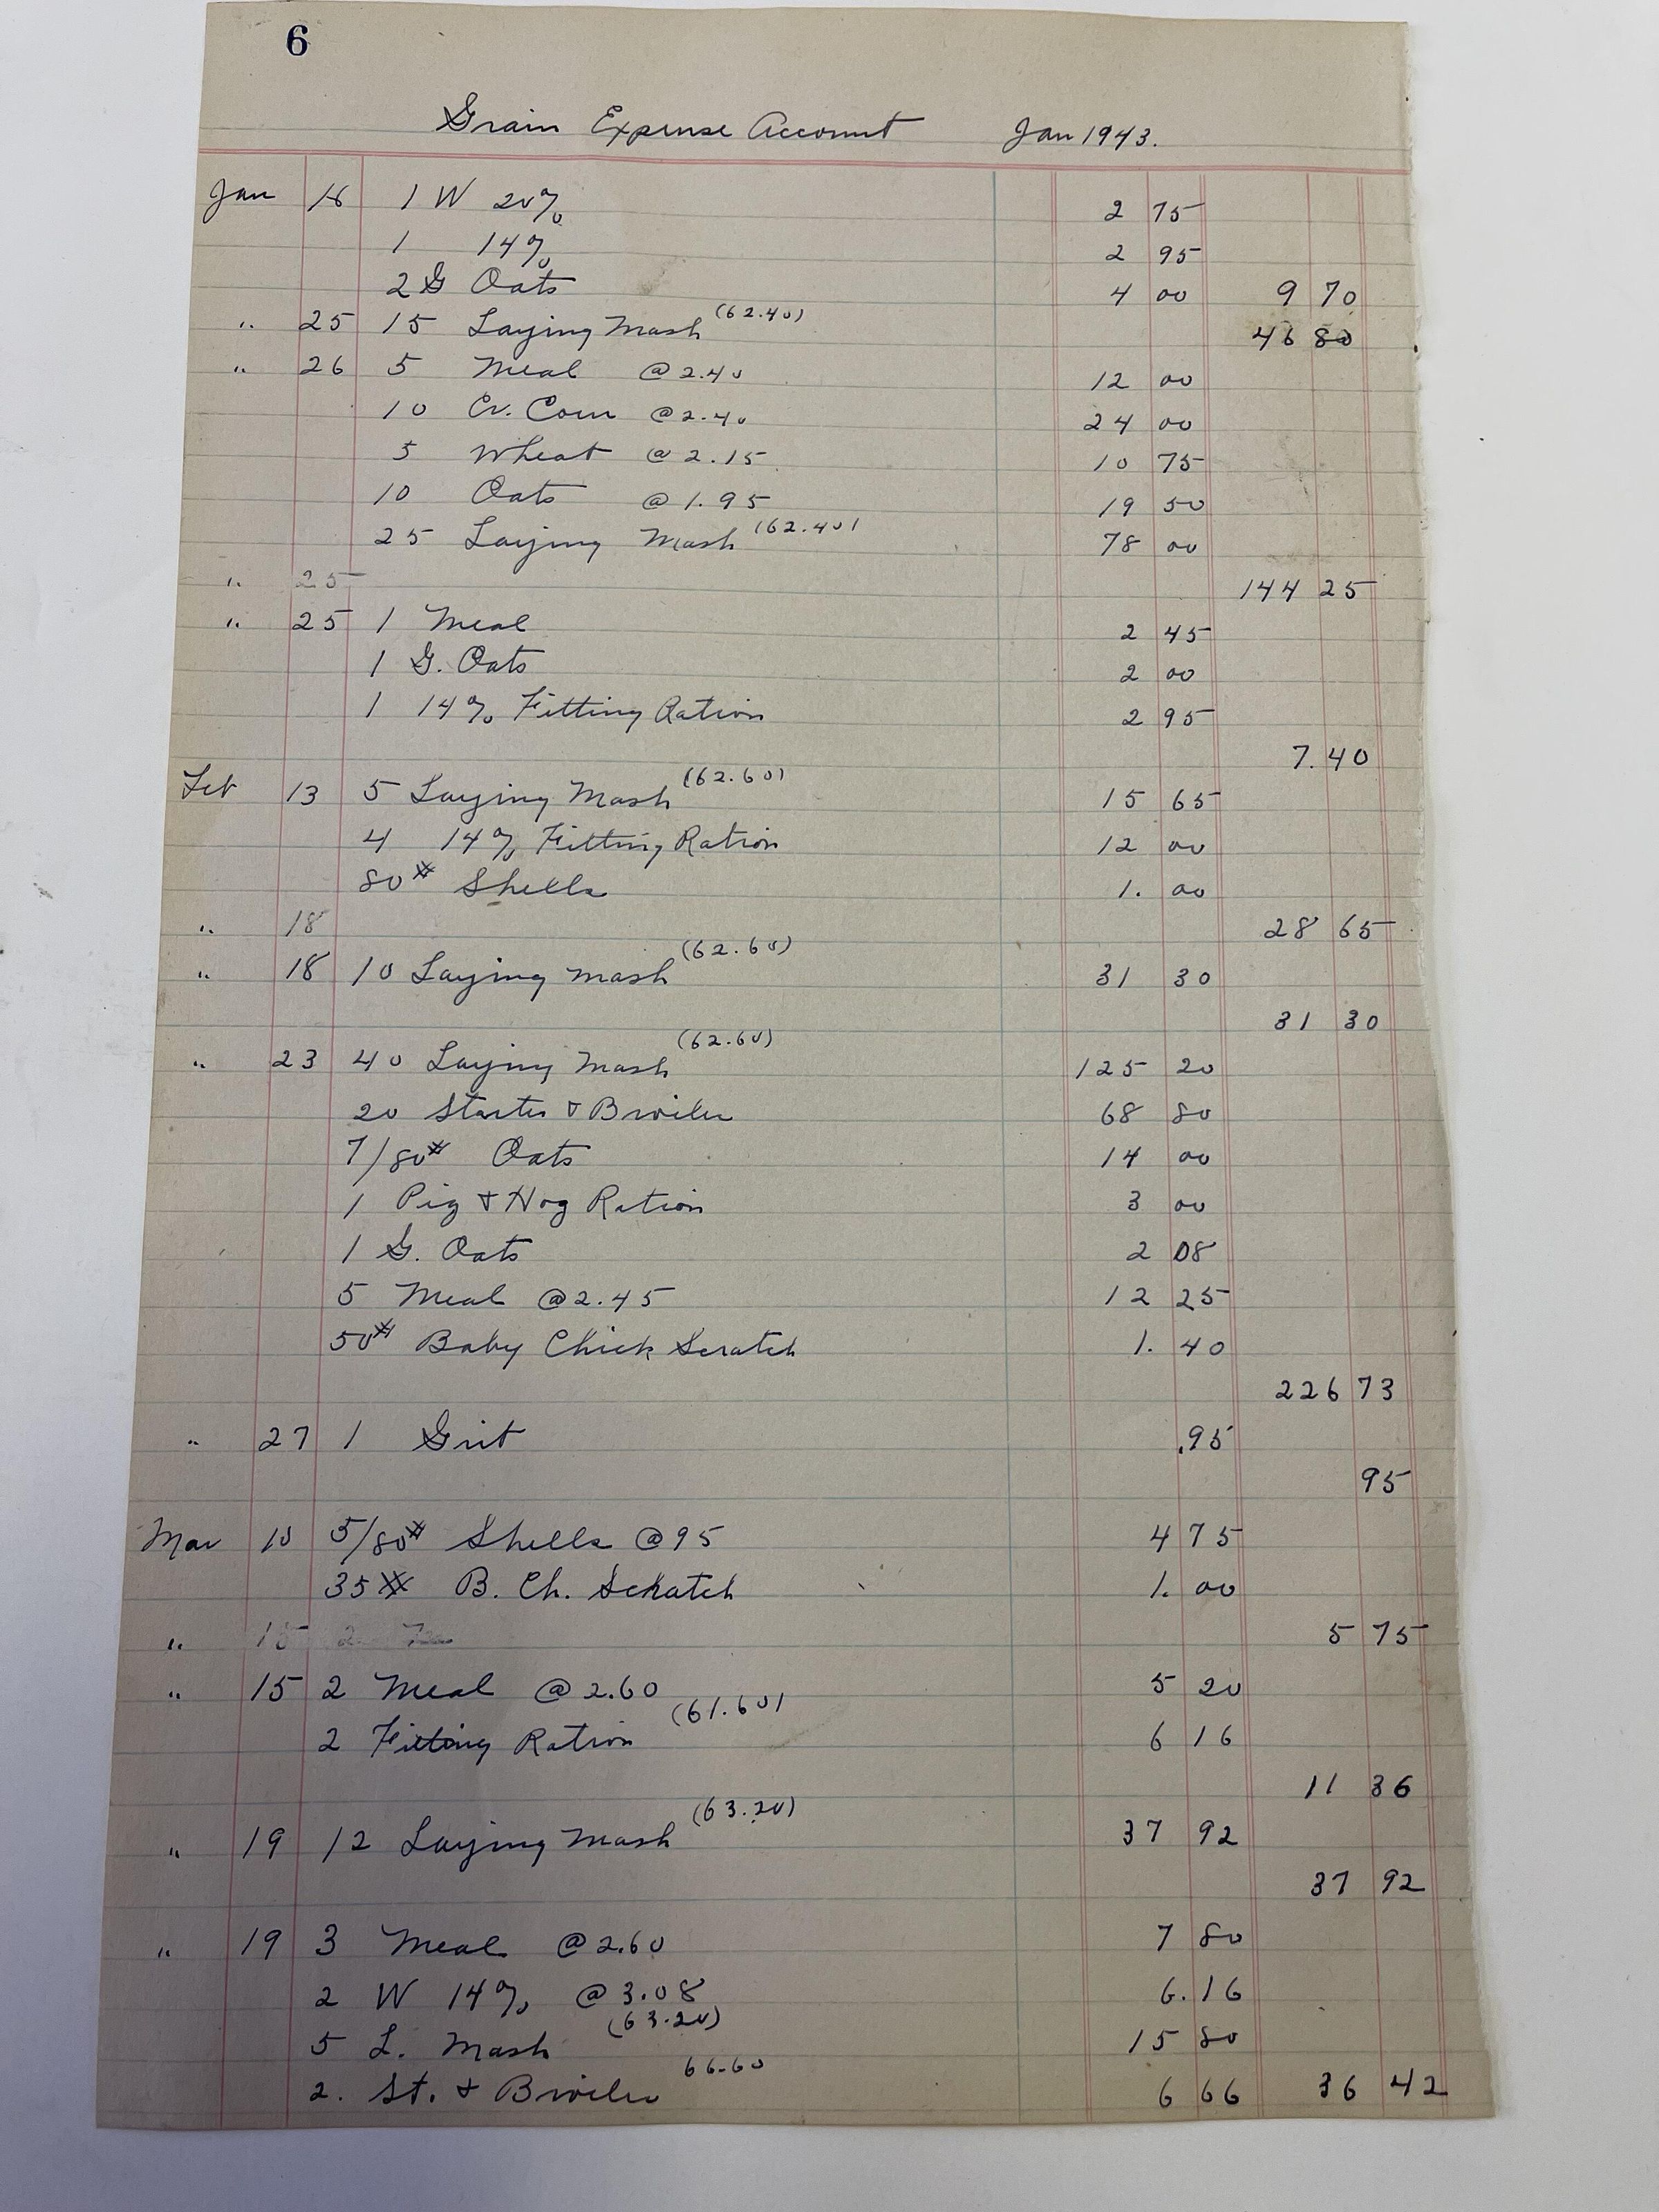 6
Grain Expense Account Jan 1943.
Jan 16 1 W 20% 2 75
1 14% 2 95
2 G Oats 4 00 9 70
" 25 15 Laying Mash (62.40) 46 80
" 26 5 Meal @ 2.40 12 00
10 Cr. Corn @ 2.40 24 00
5 Wheat @ 2.15 10 75
10 Oats @ 1.95 19 50
25 Laying Mash (62.40) 78 00
" 25 144 25
" 25 1 Meal 2 45
1 G. Oats 2 00
1 14% Fitting Ration 2 95
7.40
Feb 13 5 Laying Mash (62.60) 15 65
4 14% Fitting Ration 12 00
80# Shells 1. 00
" 18 28 65
" 18 10 Laying Mash (62.60) 31 30
31 30
" 23 40 Laying Mash (62.60) 125 20
20 Starter & Broiler 68 80
7/80# Oats 14 00
1 Pig & Hog Ration 3 00
1 G. Oats 2 08
5 Meal @ 2.45 12 25
50# Baby Chick Scratch 1. 40
226 73
" 27 1 Grit .95
95
Mar 10 5/80# Shells @ 95 4 75
35# B. Ch. Scratch 1. 00
" 15 2 5 75
" 15 2 Meal @ 2.60 5 20
2 Fitting Ration (61.60) 6 16
11 36
" 19 12 Laying Mash (63.20) 37 92
37 92
" 19 3 Meal @ 2.60 7 80
2 W 14% @ 3.08 6.16
5 L. Mash (63.20) 15 80
2. St. & Broiler 66.60 6 66 36 42